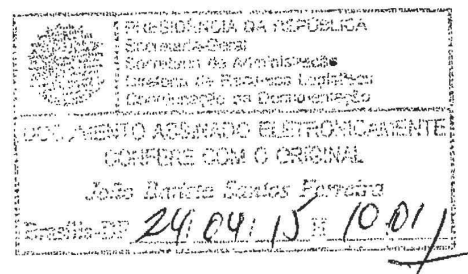 PRESIDÊNCIA DA REPÚBLICA
Secretaria-Geral
Secretaria de Administração
Diretoria de Recursos Logísticos
Coordenação de Documentação
DOCUMENTO ASSINADO ELETRONICAMENTE
CONFERE COM O ORIGINAL
João Batista Santos Ferreira
Brasília-DF 24/04/15 H 10:01